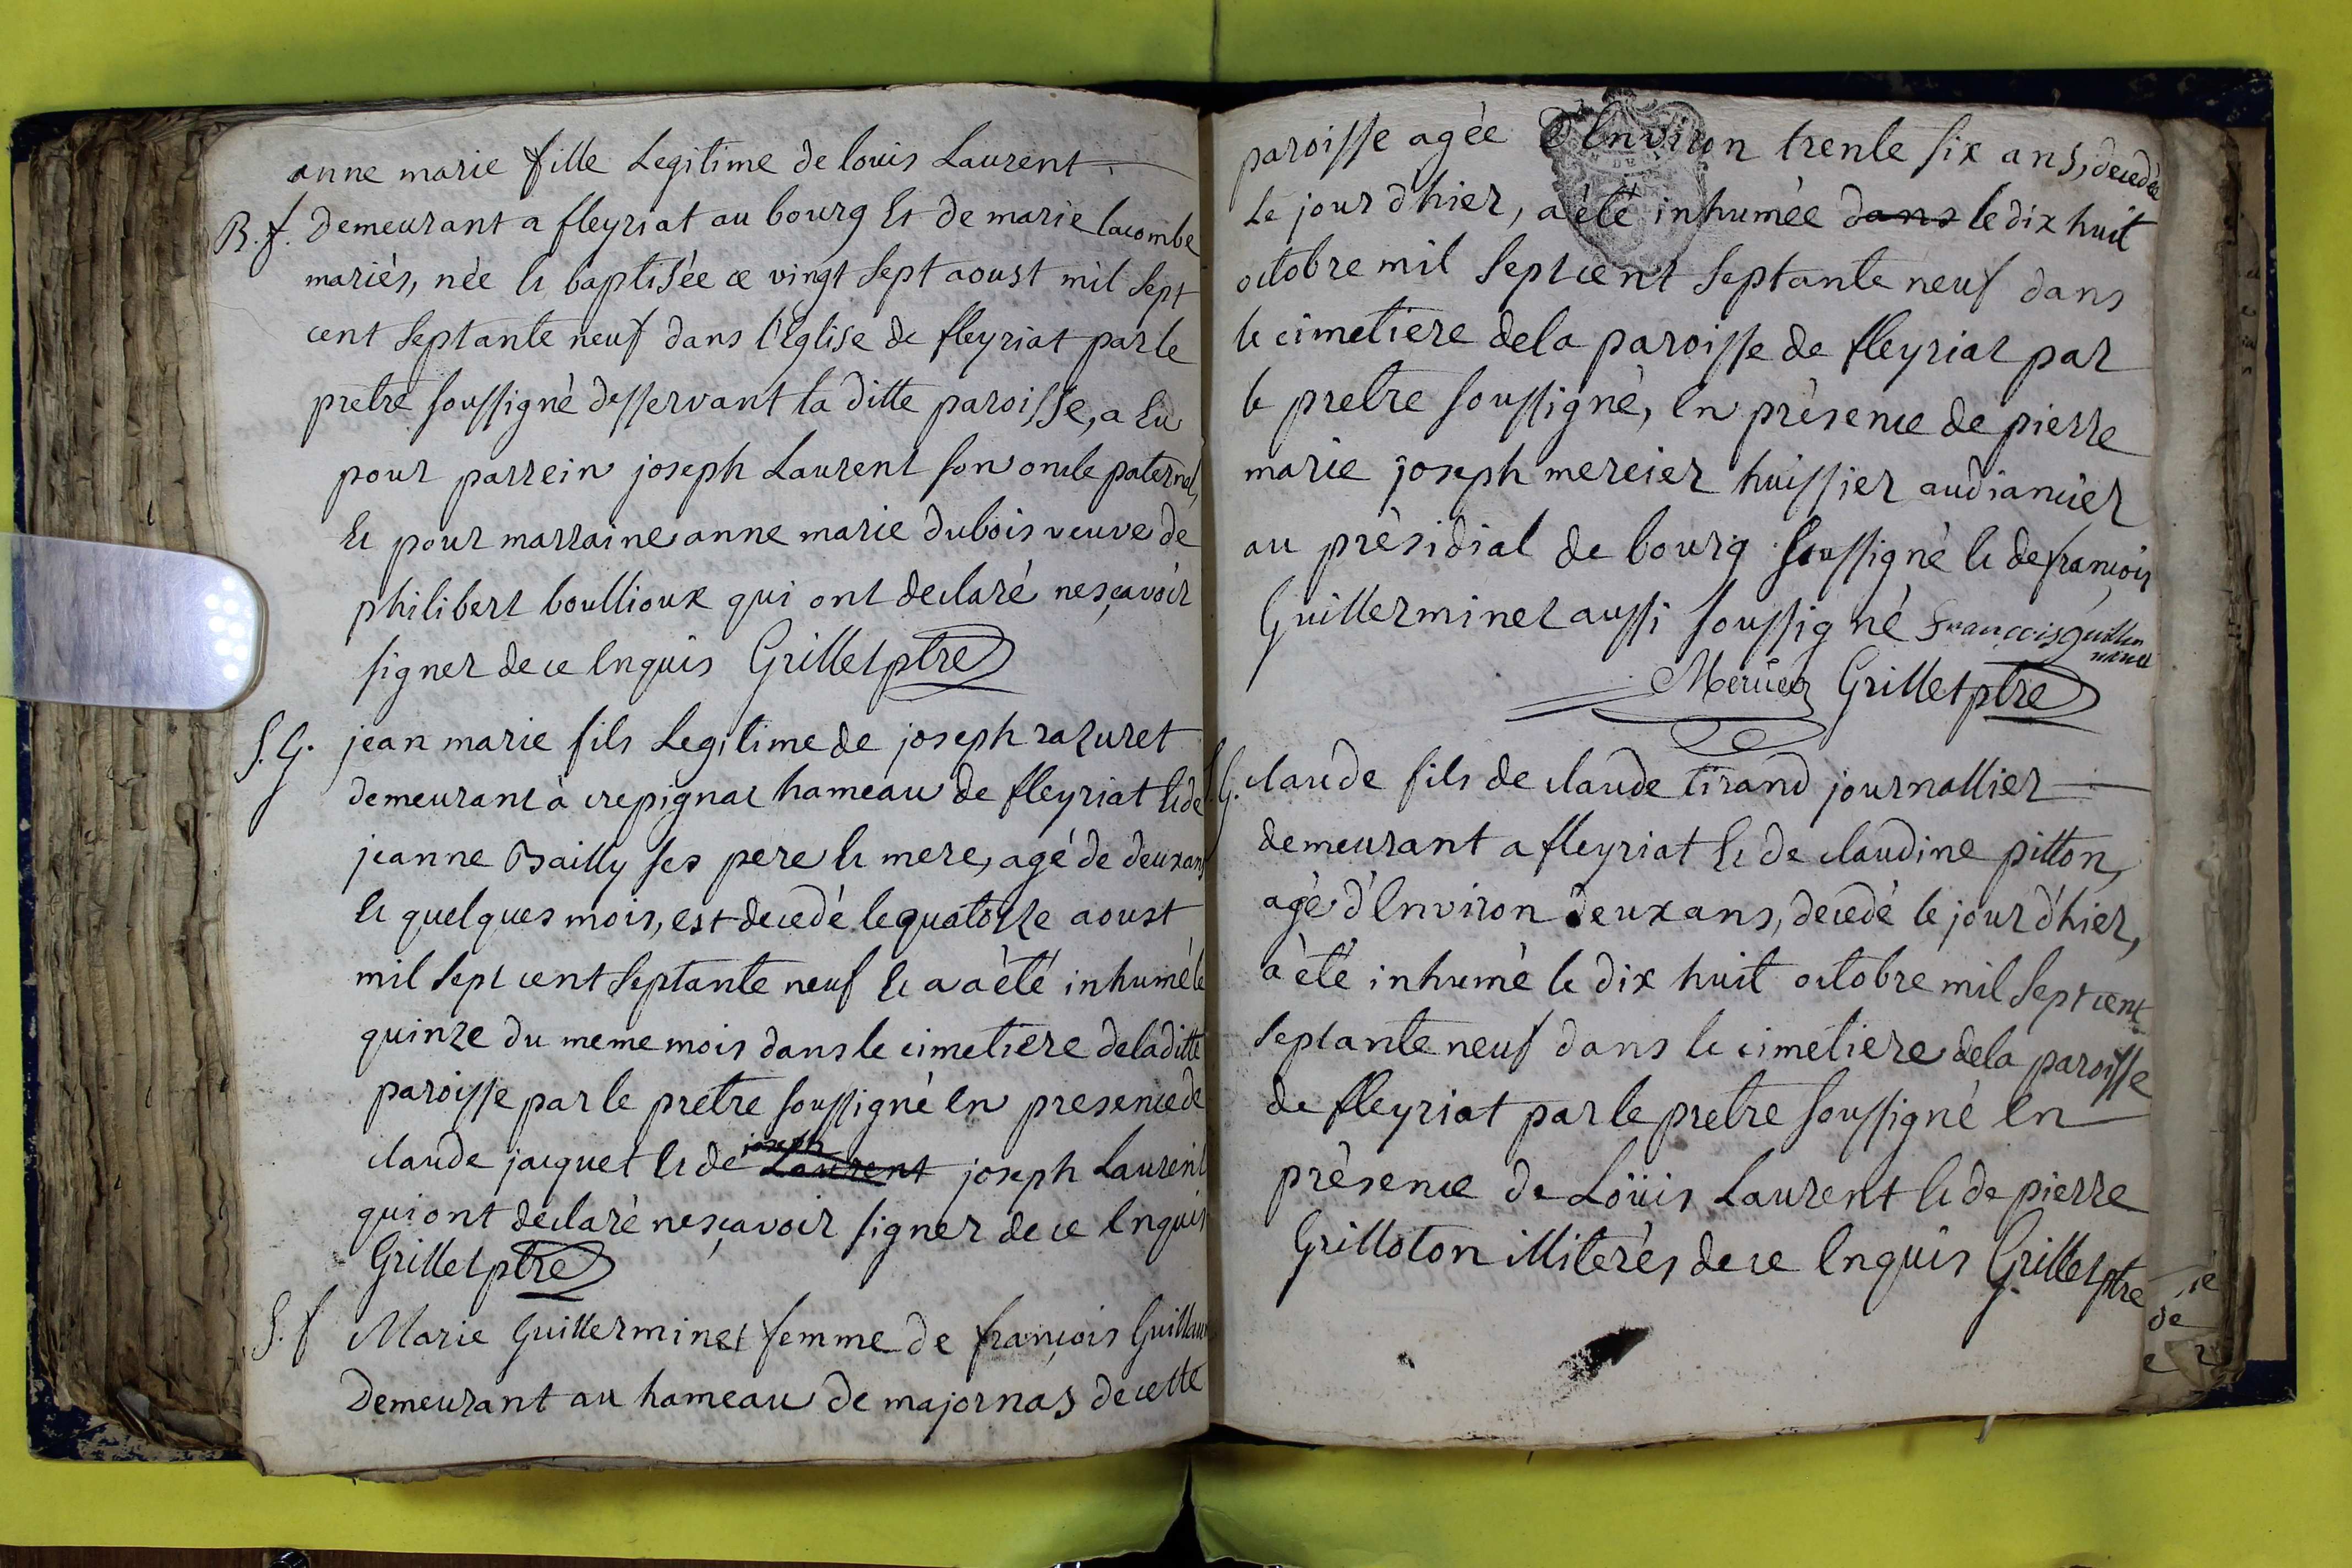 anne marie fille Legitime de louis Laurent
B. f. Demeurant a fleyriat au bourg Et de marie lacombe
mariés, née Et baptisée ce vingt Sept aoust mil Sept
cent Septante neuf dans l'Eglise de fleyriat par le
pretre soussigné desservant la ditte paroisse, a Eu
pour parrein joseph Laurent son oncle paternel,
Et pour marraine anne marie dubois veuve de
philibert boullioux qui ont declaré ne sçavoir
signer de ce Enquis Grillet ptre
S. G. jean marie fils Legitime de joseph razuret
demeurant à crepignat hameau de fleyriat Et de
jeanne Bailly ses pere Et mere, agé de deux ans
Et quelques mois, est decedé le quatorze aoust
mil Sept cent Septante neuf Et a a été inhumé le
quinze du meme mois dans le cimetiere de la ditte
paroisse par le pretre soussigné En presence de
claude jacquet Et de joseph Laurent joseph Laurent
qui ont declaré ne sçavoir signer de ce Enquis
Grillet ptre
S. f Marie Guillerminet femme de françois Guillau
Demeurant au hameau de majornas de cette
paroisse agée d'Environ trente six ans, decedée
Le jour d'hier, a été inhumée dans le dix huit
octobre mil Sept cent Septante neuf dans
le cimetiere de la paroisse de fleyriat par
le pretre soussigné, En présence de pierre
marie joseph mercier huissier audiancier
au présidial de bourg soussigné Et de françois
Guillerminet aussi soussigné François Guiller
minet
Mercier Grillet ptre
S. G. claude fils de claude tirand journallier
demeurant a fleyriat Et de claudine pitton,
agé d'Environ deux ans, decedé le jour d'hier,
a été inhumé le dix huit octobre mil Sept cent
Septante neuf dans le cimetiere de la paroisse
de fleyriat par le pretre soussigné En
présence de Loüis Laurent Et de pierre
Grilloton illiterés de ce Enquis Grillet ptre